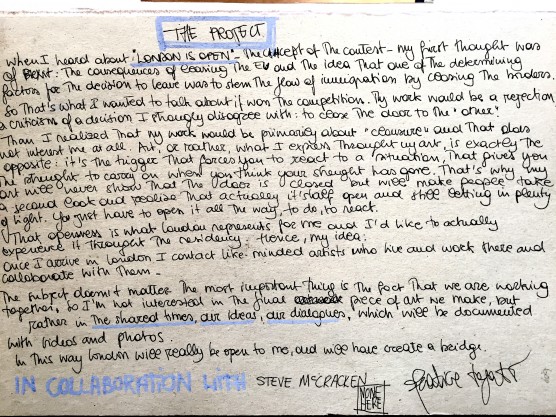 THE PROJECT
When I heard about "LONDON IS OPEN" - The concept of The contest - my first thought was
of Brexit: The consequences of leaving The EU and The idea That one of The determining
factors for The decision to leave was to stem The flow of immigration by closing The borders.
So That's what I wanted to talk about if I won The competition. My work would be a rejection
a criticism of a decision I strongly disagree with: to close The door to The "other".
Than I realized that my work would be primarily about "closure" and That does
not interest me at all. Art, or rather, what I express Throught my art, is exactly The
opposite: it's The trigger That forces you to react to a situation, That gives you
The strenght to carry on when you think your strenght has gone. That's why my
art will never show That The door is closed but will make people take
a second look and realise That actually it's still open and still letting in plenty
of light. You just have to open it all The way, to do, to react.
That openness is what London represents for me and I'd like to actually
experience it Throught The residency. Hence, my idea:
once I arrive in London I contact like-minded artists who live and work There and
collaborate with Them -
The subject doesn't matter. The most important Thing is The fact That we are working
together, so I'm not interested in The final piece of art we make, but
rather in The shared times, our ideas, our dialogues, which will be documented
with videos and photos.
In This way London will really be open to me, and will have create a bridge.
IN COLLABORATION WITH STEVE McCRACKEN
NONE
HERE